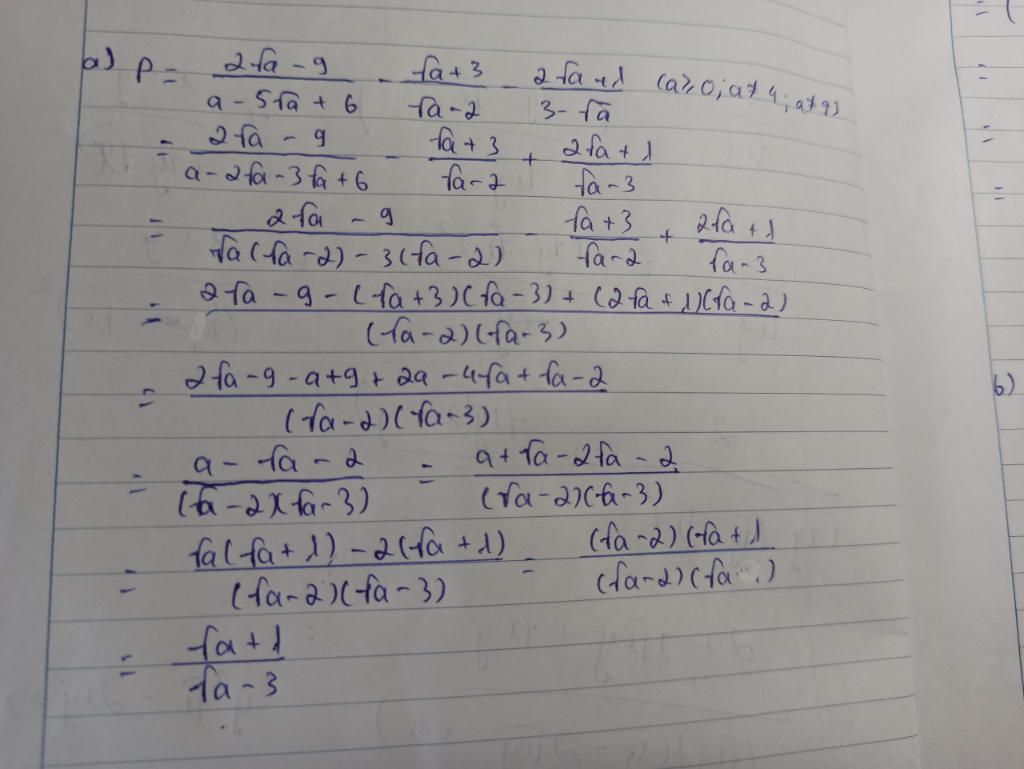 = (
=
=
=
b)
a) P = (2√a - 9)/(a - 5√a + 6) - (√a + 3)/(√a - 2) - (2√a + 1)/(3 - √a) (a ≥ 0; a ≠ 4; a ≠ 9)
= (2√a - 9)/(a - 2√a - 3√a + 6) - (√a + 3)/(√a - 2) + (2√a + 1)/(√a - 3)
= (2√a - 9)/(√a(√a - 2) - 3(√a - 2)) - (√a + 3)/(√a - 2) + (2√a + 1)/(√a - 3)
= (2√a - 9 - (√a + 3)(√a - 3) + (2√a + 1)(√a - 2))/((√a - 2)(√a - 3))
= (2√a - 9 - a + 9 + 2a - 4√a + √a - 2)/((√a - 2)(√a - 3))
= (a - √a - 2)/((√a - 2)(√a - 3)) = (a + √a - 2√a - 2)/((√a - 2)(√a - 3))
= (√a(√a + 1) - 2(√a + 1))/((√a - 2)(√a - 3)) = ((√a - 2)(√a + 1)/((√a - 2)(√a )
= (√a + 1)/(√a - 3)